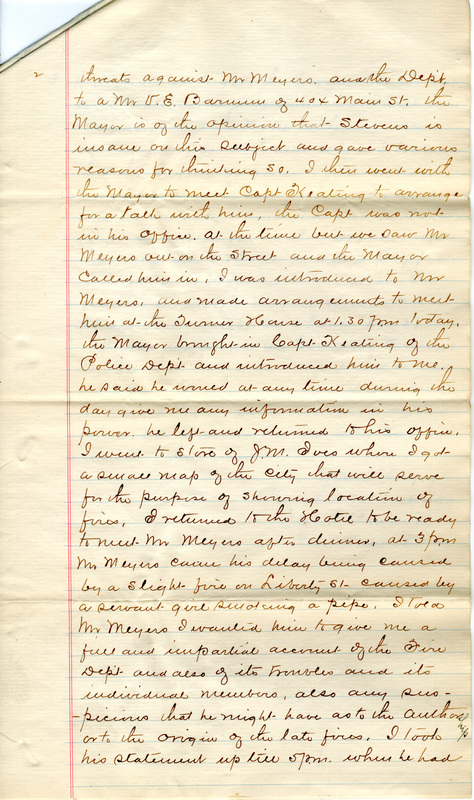 2
threats against Mr Meyers. and the Dept,
to a Mr V. E. Barnum of 404 Main St, the
Mayor is of the opinion that Stevens is
insane on this subject and gave various
reasons for thinking so. I then went with
the Mayor to meet Capt Keating to arrange
for a talk with him, the Capt was not
in his office. at the time but we saw Mr
Meyers out on the Street and the Mayor
Called him in, I was introduced to Mr
Meyers, and made arrangements to meet
him at the Turner House at 1.30 pm today,
the Mayor brought in Capt Keating of the
Police Dept and introduced him to me.
he said he would at any time during the
day give me any information in his
power. he left and returned to his office.
I went to Store of J.M. Ives where I got
a small map of the City that will serve
for the purpose of showing location of
fires, I returned to the Hotel to be ready
to meet Mr Meyers after dinner, at 3 pm
Mr Meyers came his delay being caused
by a slight fire on Liberty St caused by
a servant girl smoking a pipe. I told
Mr Meyers I wanted him to give me a
full and impartial account of the Fire
Dept and also of its troubles and its
individual members, also any sus-
-picions that he might have as to the author
or to the origin of the late fires. I took
his statement up till 5 pm. when he had